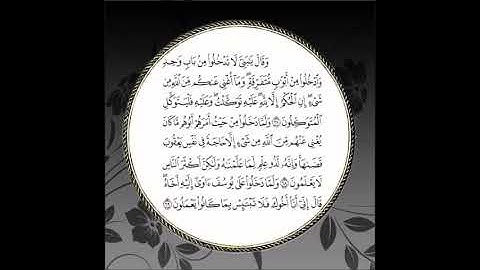 وَقَالَ يَٰبَنِىَّ لَا تَدْخُلُوا۟ مِنۢ بَابٍ وَٰحِدٍ
وَٱدْخُلُوا۟ مِنْ أَبْوَٰبٍ مُّتَفَرِّقَةٍ ۖ وَمَآ أُغْنِى عَنكُم مِّنَ ٱللَّهِ مِن
شَىْءٍ ۖ إِنِ ٱلْحُكْمُ إِلَّا لِلَّهِ ۖ عَلَيْهِ تَوَكَّلْتُ ۖ وَعَلَيْهِ فَلْيَتَوَكَّلِ
ٱلْمُتَوَكِّلُونَ ﴿٦٧﴾ وَلَمَّا دَخَلُوا۟ مِنْ حَيْثُ أَمَرَهُمْ أَبُوهُم مَّا كَانَ
يُغْنِى عَنْهُم مِّنَ ٱللَّهِ مِن شَىْءٍ إِلَّا حَاجَةً فِى نَفْسِ يَعْقُوبَ
قَضَىٰهَا ۚ وَإِنَّهُۥ لَذُو عِلْمٍ لِّمَا عَلَّمْنَٰهُ وَلَٰكِنَّ أَكْثَرَ ٱلنَّاسِ
لَا يَعْلَمُونَ ﴿٦٨﴾ وَلَمَّا دَخَلُوا۟ عَلَىٰ يُوسُفَ ءَاوَىٰٓ إِلَيْهِ أَخَاهُ ۖ
قَالَ إِنِّىٓ أَنَا۠ أَخُوكَ فَلَا تَبْتَئِسْ بِمَا كَانُوا۟ يَعْمَلُونَ ﴿٦٩﴾